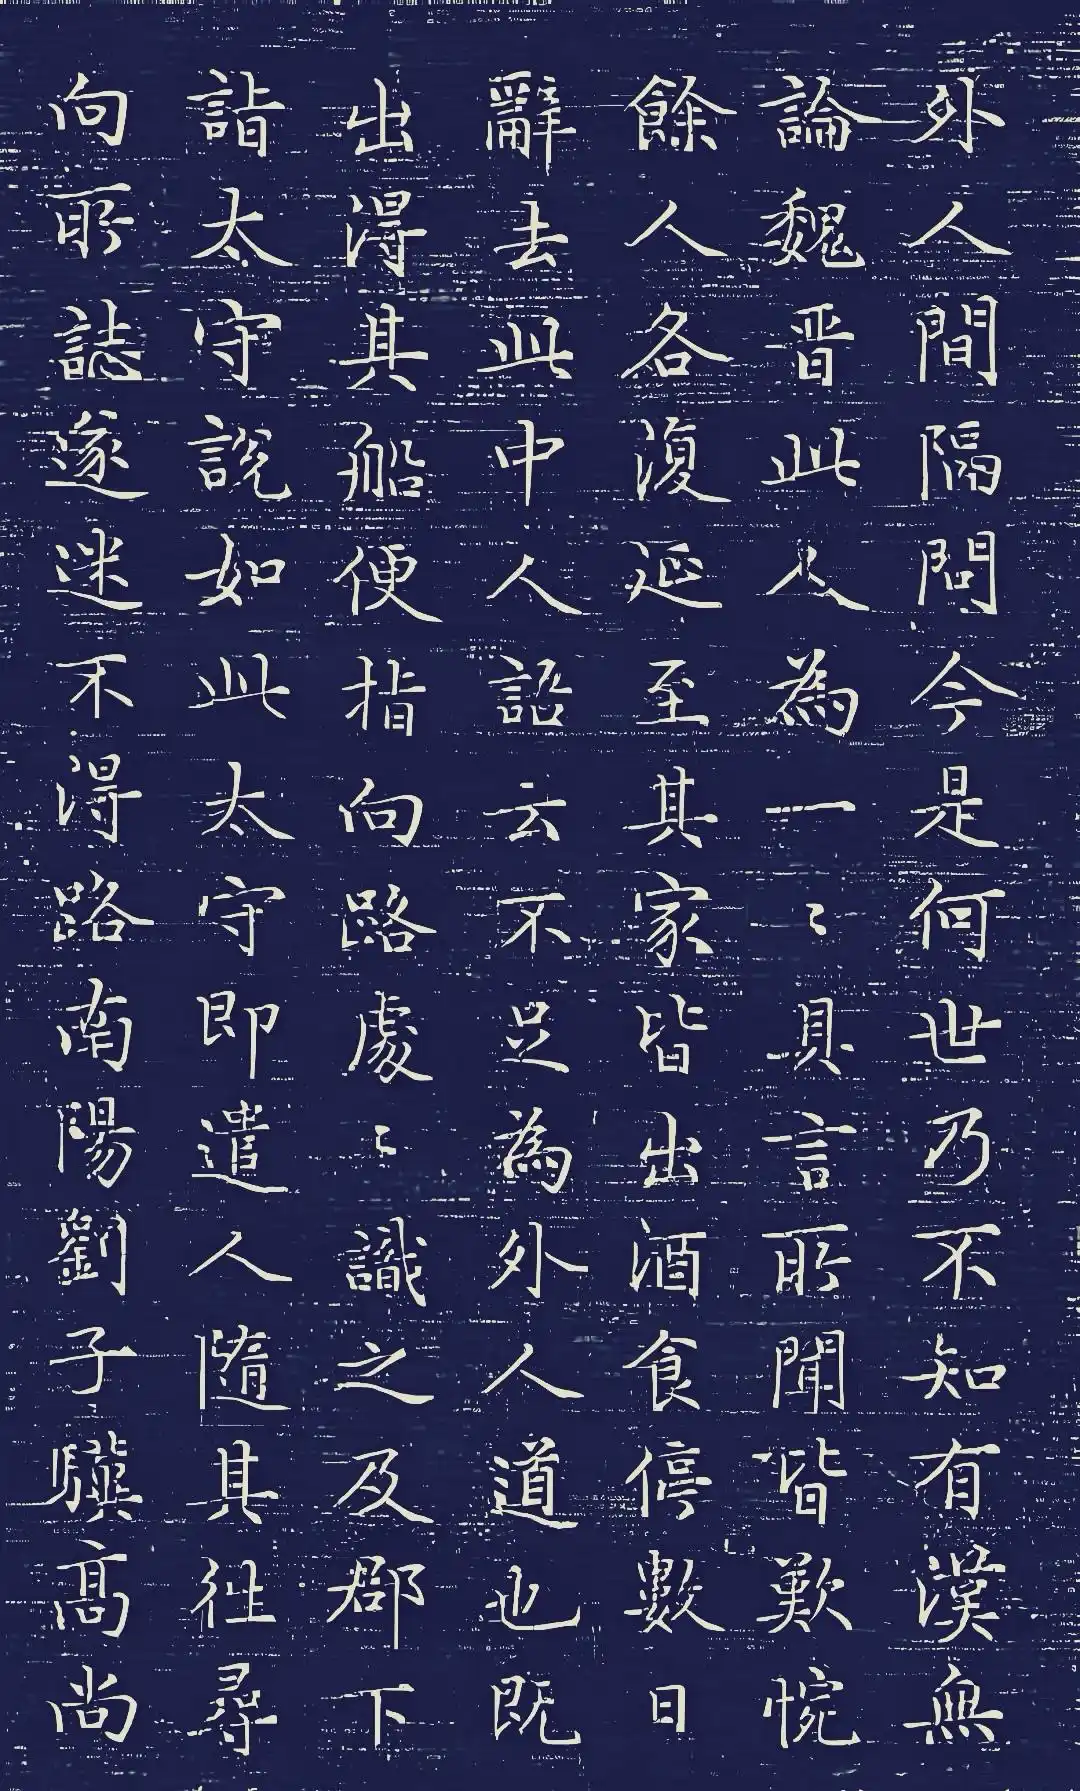 外人間隔問今是何世乃不知有漢無
論魏晋此人為一〻具言所聞皆歎惋
餘人各復延至其家皆出酒食停數日
辭去此中人語云不足為外人道也既
出得其船便指向路處〻識之及郡下
詣太守說如此太守即遣人隨其往尋
向所誌遂迷不得路南陽劉子驥高尚